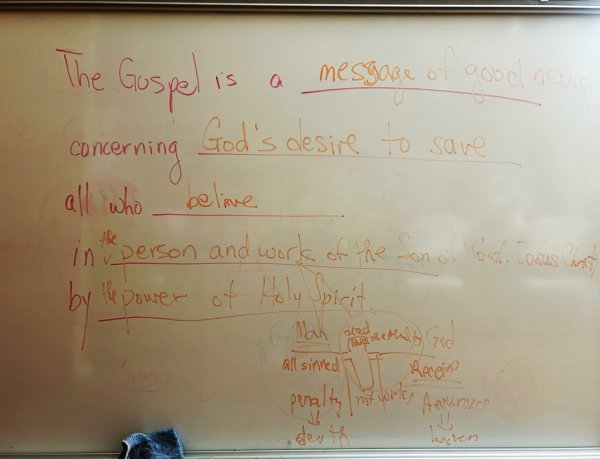 The Gospel is a message of good news
concerning God's desire to save
all who believe
in the person and work of the Son of God, Jesus Christ,
by the power of Holy Spirit
Man dead God
all sinned Receive
penalty not works Assurance
death heaven